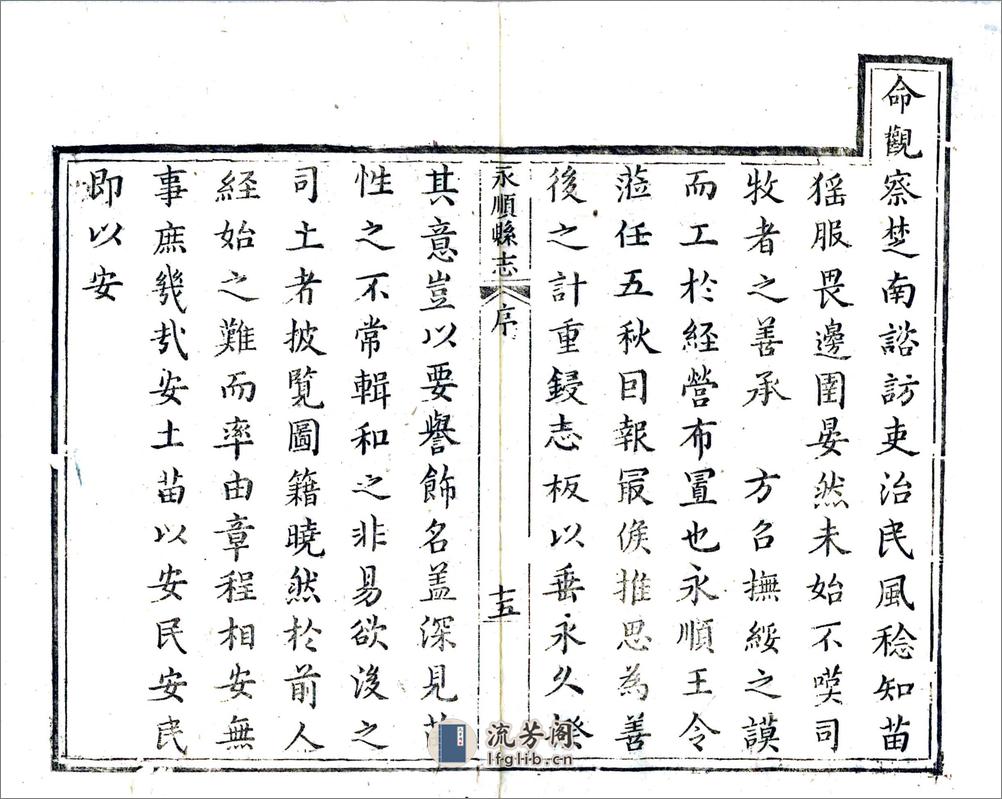 命觀察楚南諮訪吏治民風稔知苗
猺服畏邊圉晏然未始不嘆司
牧者之善承　方召撫綏之謨
而工於經營布置也永順王令
蒞任五秋囙報最僃推思為善
後之計重鋟志板以垂永久揆
永順縣志　序　十五
其意豈以要譽飾名盖深見苗
性之不常輯和之非易欲後之
司土者披覽圖籍曉然於前人
經始之難而率由章程相安無
事庶幾㦲安土苗以安民安民
即以安
流芳阁
lfglib.cn